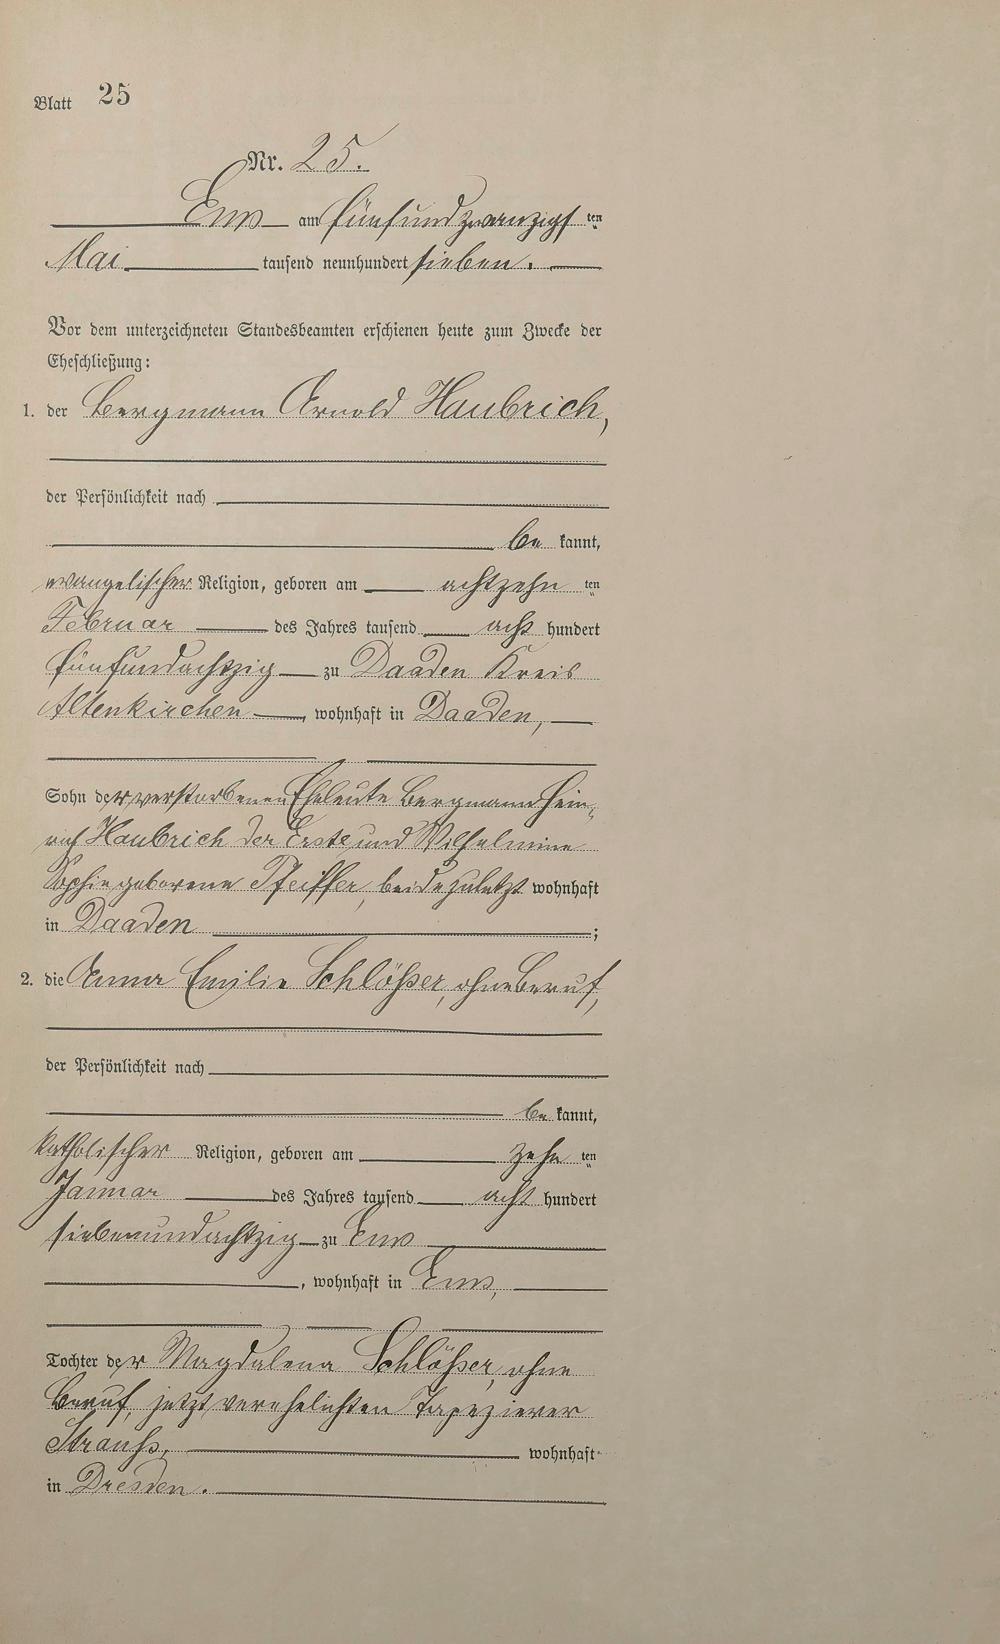 Blatt 25
Nr. 25.
Ems am fünfundzwanzigsten
Mai tausend neunhundert sieben.
Vor dem unterzeichneten Standesbeamten erschienen heute zum Zwecke der
Eheschließung:
1. der Bergmann Arnold Haubrich,
der Persönlichkeit nach
be kannt,
evangelischer Religion, geboren am achtzehn ten
Februar des Jahres tausend acht hundert
fünfundachtzig zu Daaden Kreis
Altenkirchen, wohnhaft in Daaden,
Sohn der verstorbenen Eheleute Bergmann Hein-
rich Haubrich der Erste und Wilhelmine
Sophie geborene Pfeiffer, beide zuletzt wohnhaft
in Daaden;
2. die Anna Emilie Schlößer, ohne Beruf,
der Persönlichkeit nach
be kannt,
katholischer Religion, geboren am zehn ten
Januar des Jahres tausend acht hundert
siebenundachtzig zu Ems
, wohnhaft in Ems,
Tochter der Magdalena Schlößer, ohne
Beruf, jetzt verehelichten Tapezierer
Strauß, wohnhaft
in Dresden.